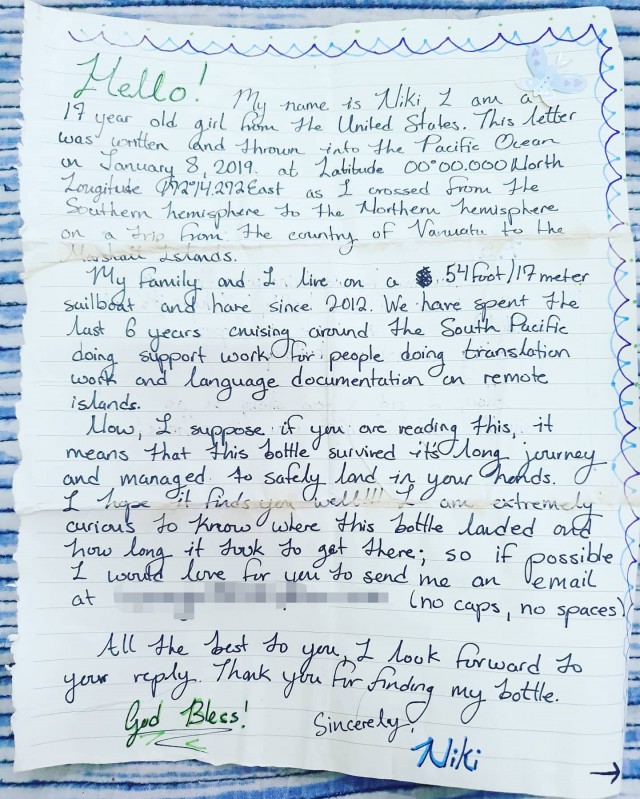 Hello! My name is Niki I am a
17 year old girl from the United States. This letter
was written and thrown into the Pacific Ocean
on January 8, 2019 at Latitude 00°00.000 North
Longitude 172°14.272 East as I crossed from the
Southern hemisphere to the Northern hemisphere
on a trip from the country of Vanuatu to the
Marshall Islands.
My family and I live on a 54 foot/17 meter
sailboat and have since 2012. We have spent the
last 6 years cruising around the South Pacific
doing support work for people doing translation
work and language documentation on remote
islands.
Now, I suppose if you are reading this, it
means that this bottle survived its long journey
and managed to safely land in your hands.
I hope it finds you well!!! I am extremely
curious to know where this bottle landed and
how long it took to get there; so if possible
I would love for you to send me an email
at (no caps, no spaces)
All the best to you, I look forward to
your reply. Thank you for finding my bottle.
God Bless! Sincerely,
Niki